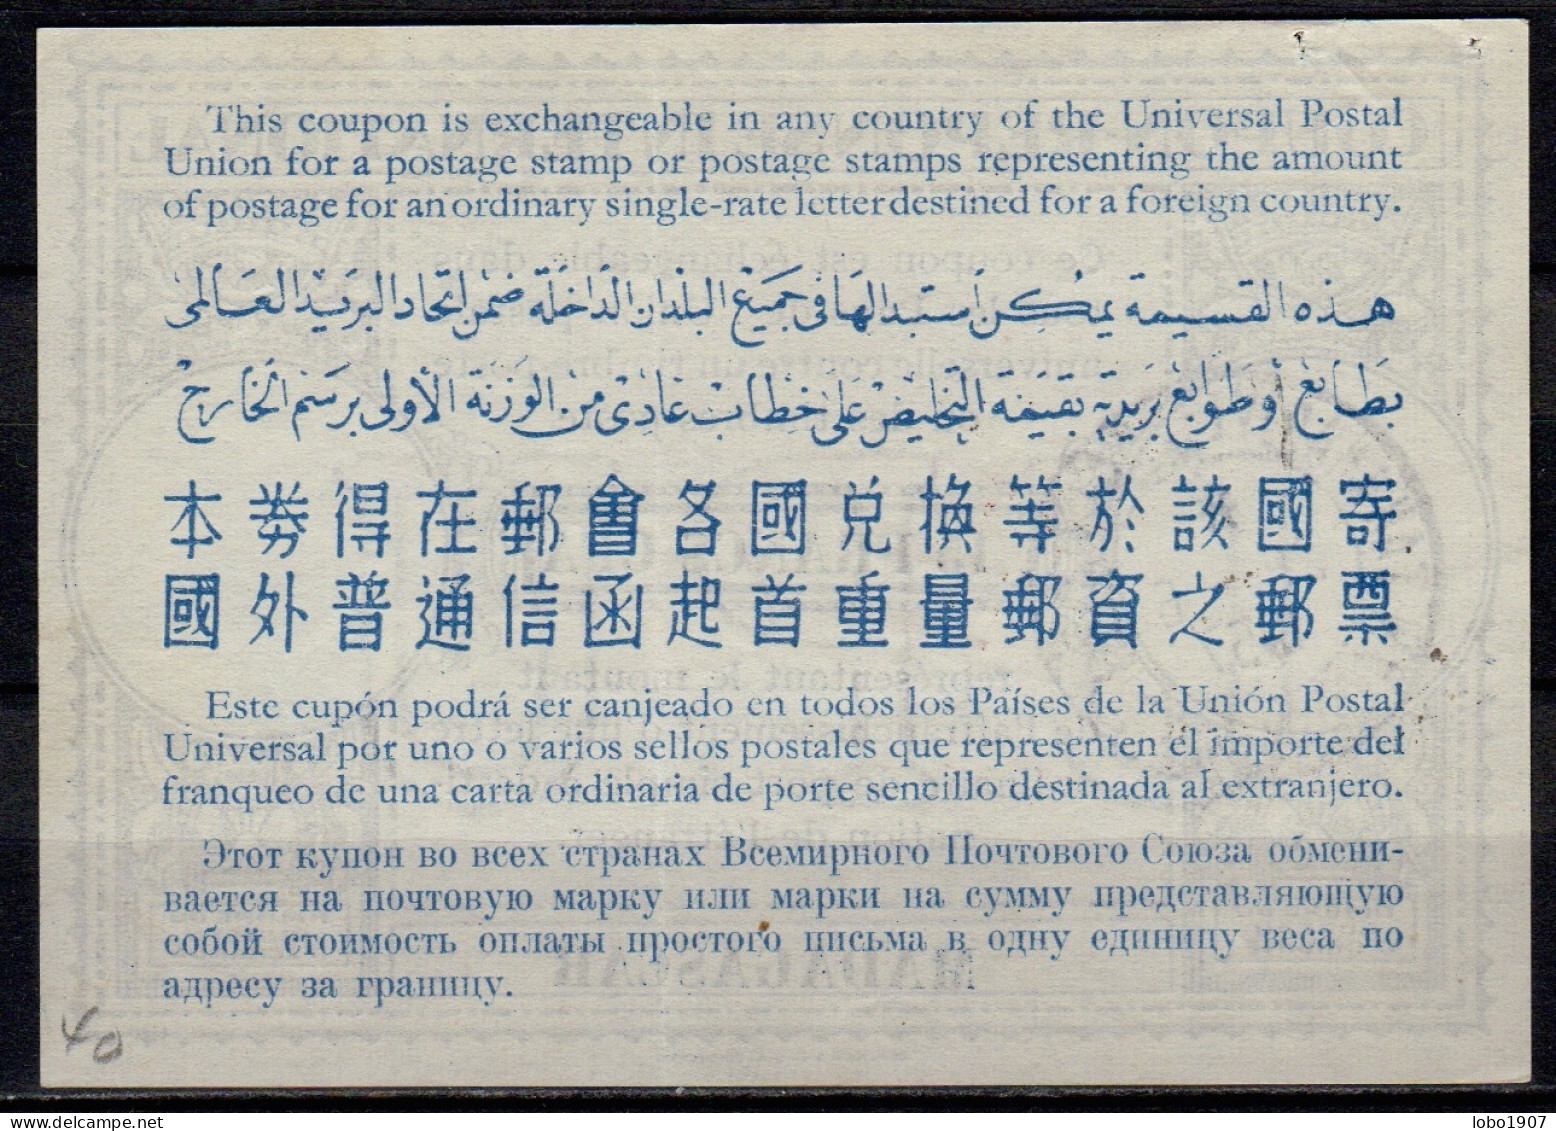 This coupon is exchangeable in any country of the Universal Postal
Union for a postage stamp or postage stamps representing the amount
of postage for an ordinary single-rate letter destined for a foreign country.
هذه القسيمة يمكن استبدالها في جميع البلدان الداخلة ضمن اتحاد البريد العالمى
بطابع أو طوابع بريدية بقيمة التخليص على خطاب عادى من الوزنة الأولى برسم الخارج
本券得在郵會各國兌換等於該國寄
國外普通信函起首重量郵資之郵票
Este cupón podrá ser canjeado en todos los Países de la Unión Postal
Universal por uno o varios sellos postales que representen el importe del
franqueo de una carta ordinaria de porte sencillo destinada al extranjero.
Этот купон во всех странах Всемирного Почтового Союза обмени-
вается на почтовую марку или марки на сумму представляющую
собой стоимость оплаты простого письма в одну единицу веса по
адресу за границу.
MADAGASCAR
40
lobo1907